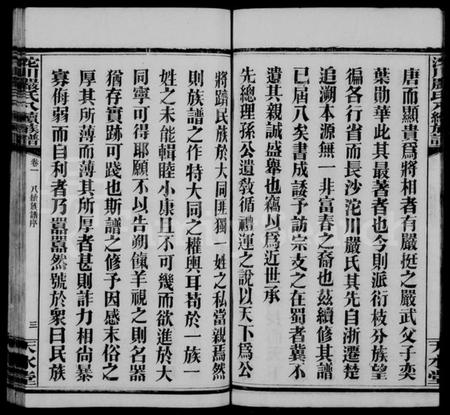 沱川嚴氏八續族譜
唐而顯貴爲將相者有嚴挺之嚴武父子奕
葉勛華此其最著者也今則派衍枝分族望
徧各行省而長沙沱川嚴氏其先自浙遷楚
追溯本源無一非富春之裔也茲續修其譜
已屆八矣書成諉予訪宗支之在蜀者冀不
遺其親誠盛舉也竊以爲近世承
先總理孫公遺敎循禮運之說以天下爲公
天水堂
沱川嚴氏八續族譜
卷一
八續族譜序
三
天水堂
將躋民族於大同匪獨一姓之私當親焉然
則族譜之作特大同之權輿耳苟於一族一
姓之未能輯睦小康且不可幾而欲進於大
同寧可得耶願不以告朔餼羊視之則名器
猶存實踐可踐也斯譜之修予因感末俗之
厚其所薄而薄其所厚者甚則詐力相尚暴
寡侮弱而自利者乃囂囂然號於衆曰民族